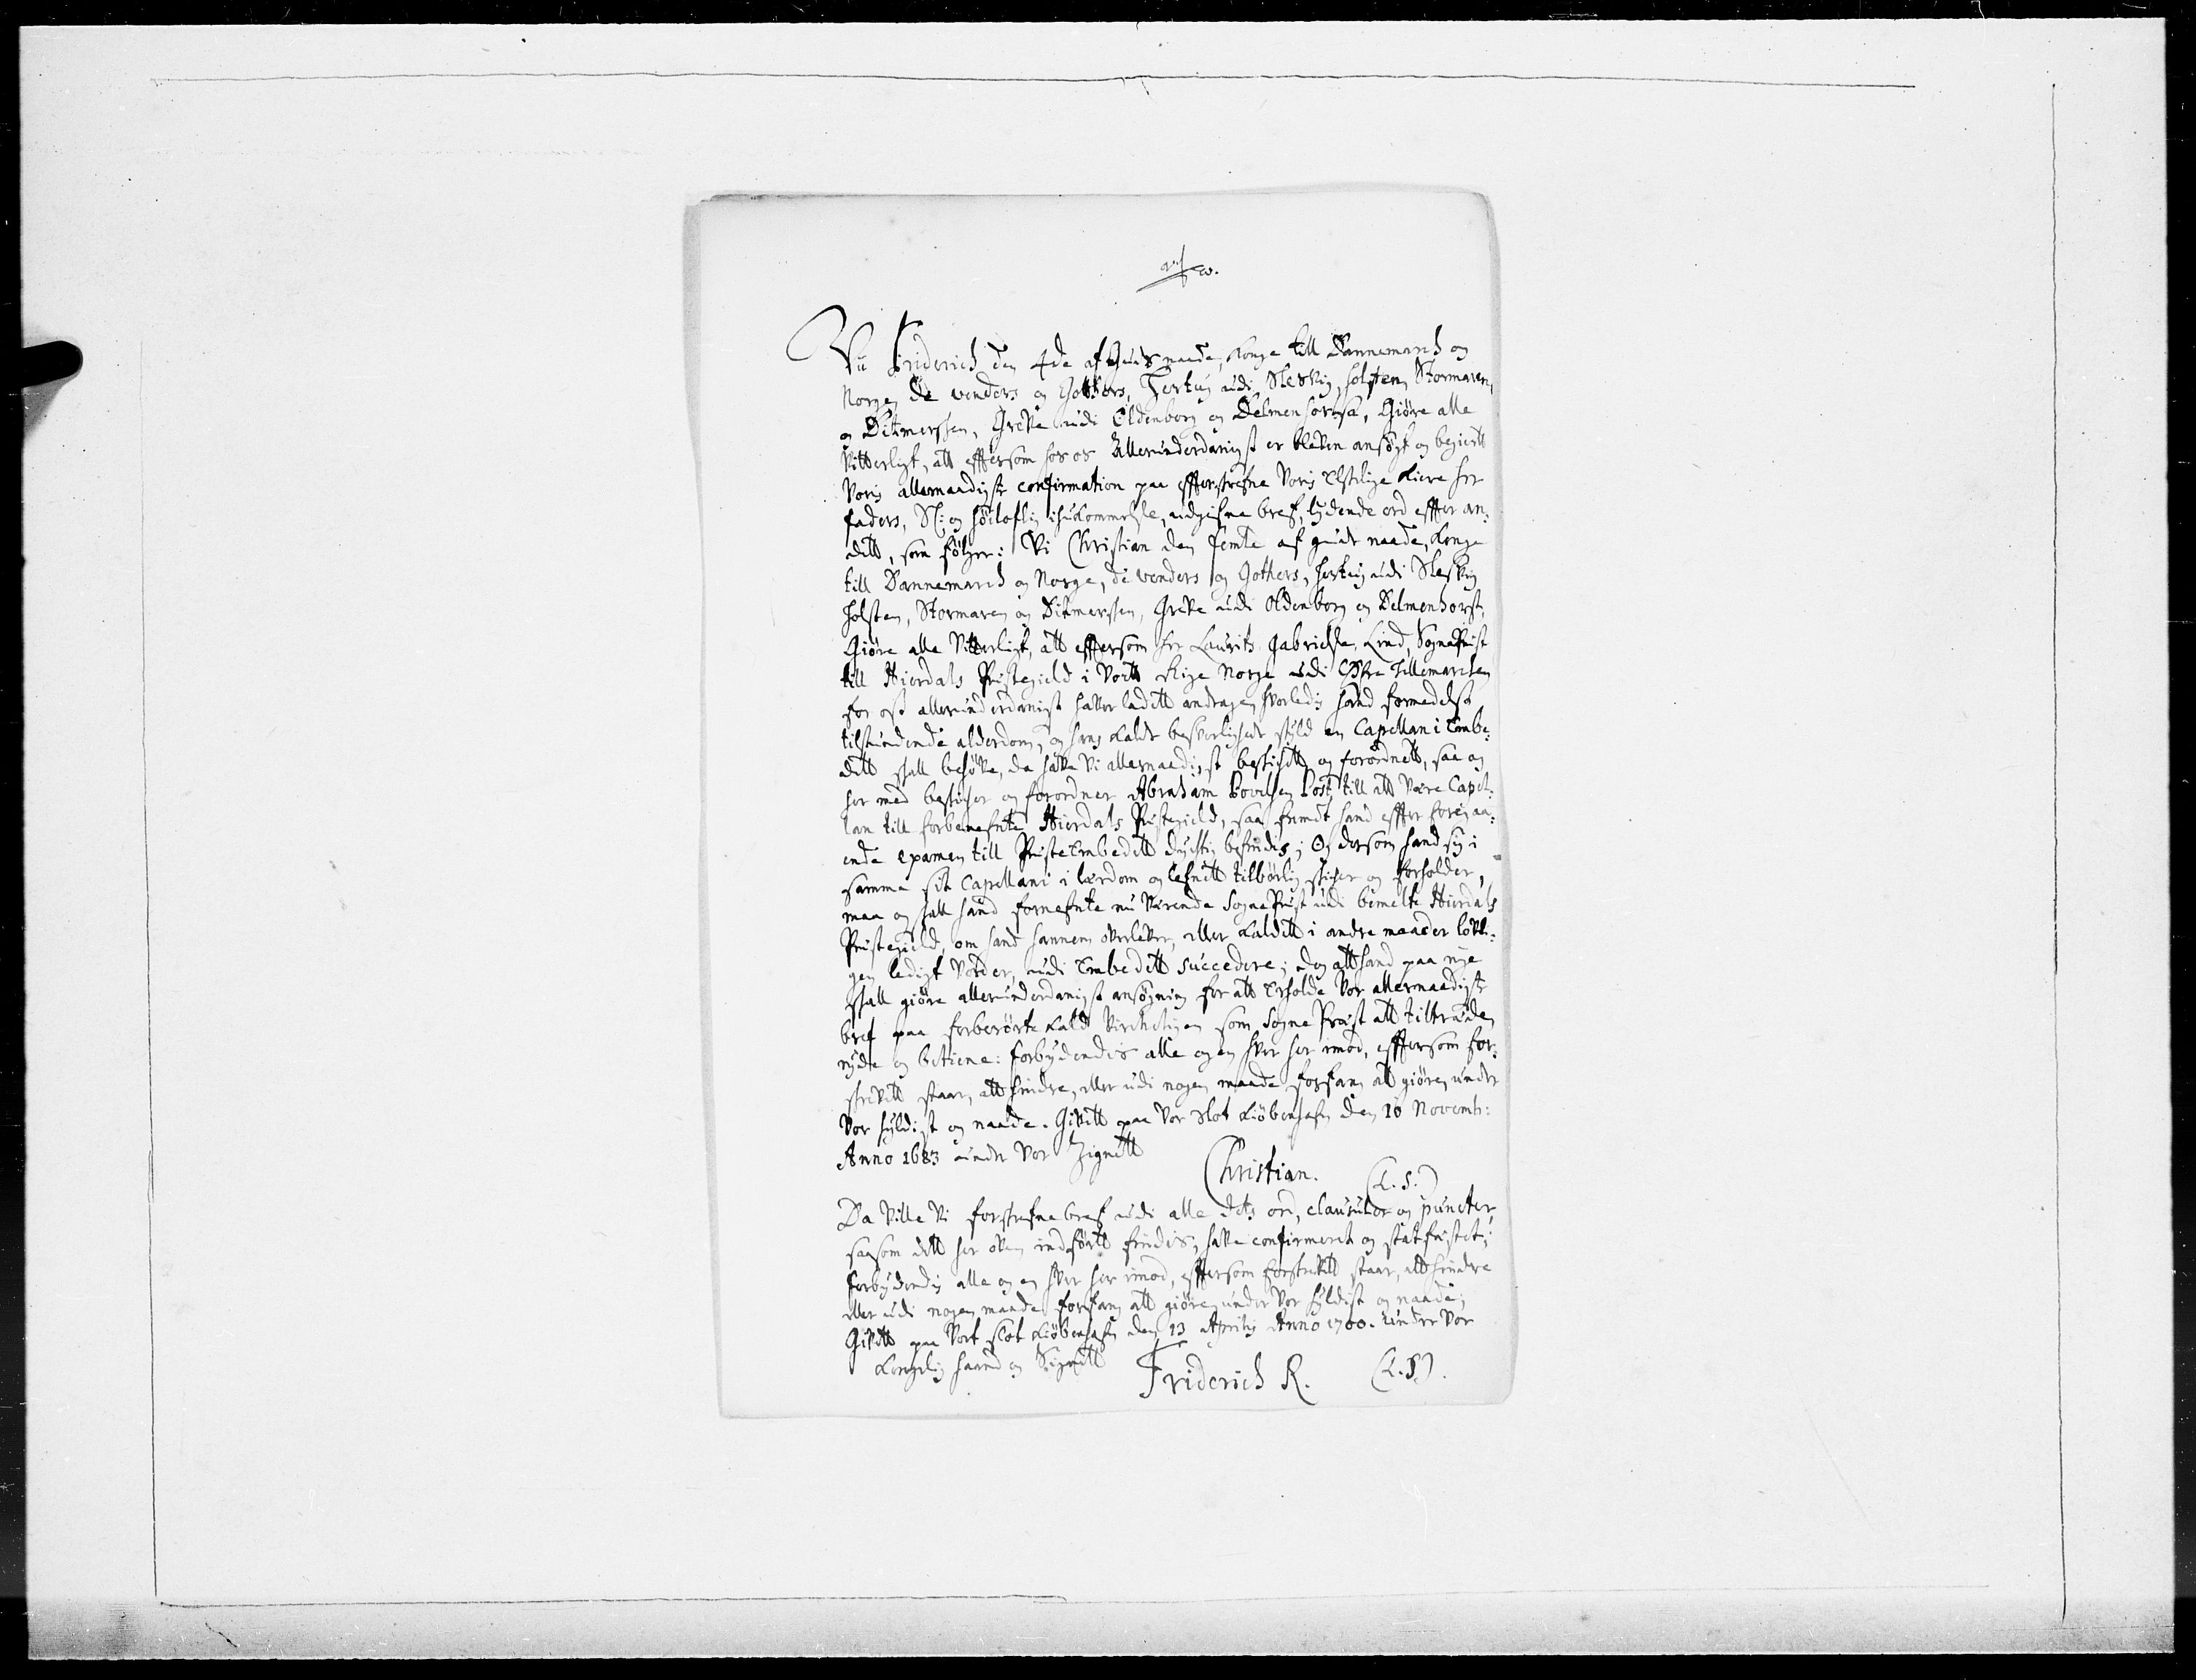 Vii Friderich den 4de af Guds naade, Konge till Dannemarch og
Norge, de venders og Gothers, Hertug udi Slesvig, Holsten, Stormaren,
og Ditmersken, Greve udi Oldenborg og Delmenhorst, Giøre alle
Vitterligt, att effersom hos os Allerunderdanigst er bleven ansøgt og begiert
Voris allernaadigste confirmation paa efferskrefne Voris Elskelige kiere Her
faders, Sl: og høiloflig ihukommelse, udgifne bref, lydende ord effter an,,
dett, som følger: Vi Christian den femte af guds naade, Konge
till Dannemarch og Norge, de venders og Gothers, Hertug udi Slesvig
Holsten, Stormaren og Ditmersken, Greve udi Oldenborg og Delmenhorst,
Giøre alle Vitterligt, att effersom Her Laurits Gabrielsen Lind, SognePrest
till Hierdals Prestegield i Vortt Rige Norge udi Øfre Tellemarchen
for oss allerunderdanigst haver ladett andragen, hvorledis hand formedelst
tilstundende alderdom, og hans kalds besverligheds skyld en Capellan i Embe,,
dett skall behøve, da have Vi allernaadigst beskicket og forordnett, saa og
her med beskicher og forordner Abraham Bovelsen Post, till att Være Capel,,
lan till forbenefnte Hierdals Prestegield, saa fremdt hand effter foregaa,,
ende examen till PresteEmbedett dychtig befindis; Og dersom hand sig i
samme sit Capellani i lerdom og lefnett tilbørlig skicher og forholder,
maa og skall hand fornefnte nu Verende SognePrest udi bemelte Hierdals
Prestegield, om hand hannem offverlever, eller kaldett i andre maader lovli,,
gen ledigt Vorder, udi Embedett succedere; dog att hand paa nye
skall giøre allerunderdanigst ansøgning for att Erholde Vor allernaadigste
bref paa forberørte kald Virchligen som SognePræst att tiltræde,
nyde og betiene: forbydendis alle og en hver her imod, effersom for,,
skrevett staar, att hindre, eller udi nogen maade forfang att giøre, under
Vor hyldist og naade. Givett paa Vor Slot Kiøbenhafn den 10 Novemb:
Anno 1683 under Vor Zignett
Christian. (L.S.)
Da Ville Vi forskrefne bref udi alle dets ord, clausuler og puncter,
saasom dett her oven indført findis, have confirmeret og stadfestet;
forbydendis alle og en hver her imod, effersom forskrevett staar, att hindre
eller udi nogen maade forfang att giøre, under Vor hyldist og naade;
Givett paa Vort Slot Kiøbenhafn den 13 Aprilis Anno 1700. under Vor
Kongelig haand og Signett
Friderich R. (L.S).